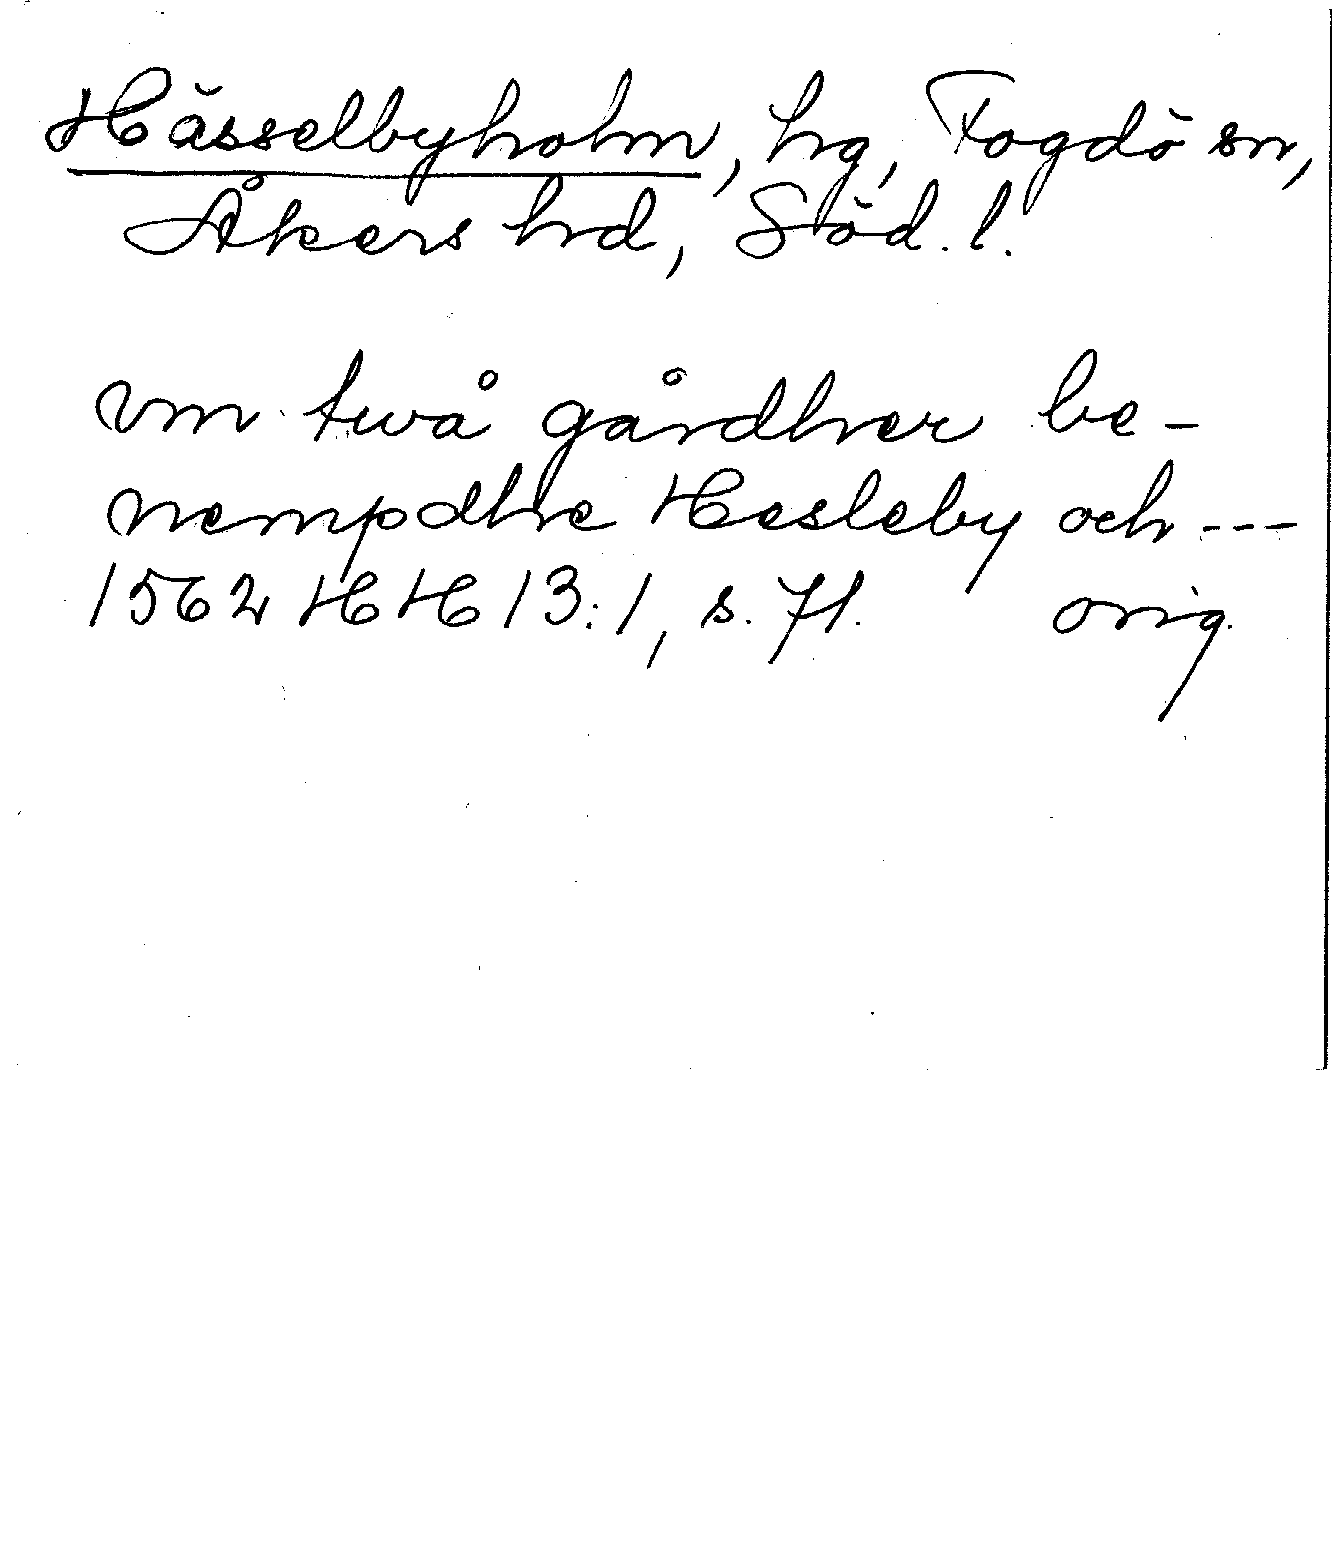 Hässelbyholm, hg, Fogdö sn,
Åkers hd, Söd. l.
vm två gårdher be-
nempdhe Hesleby och ---
1562 HH 13:1, s. 71. orig.